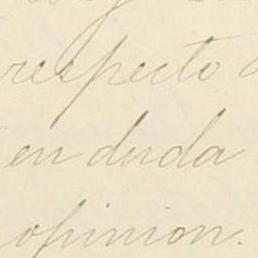 respecto
en duda
opinion.